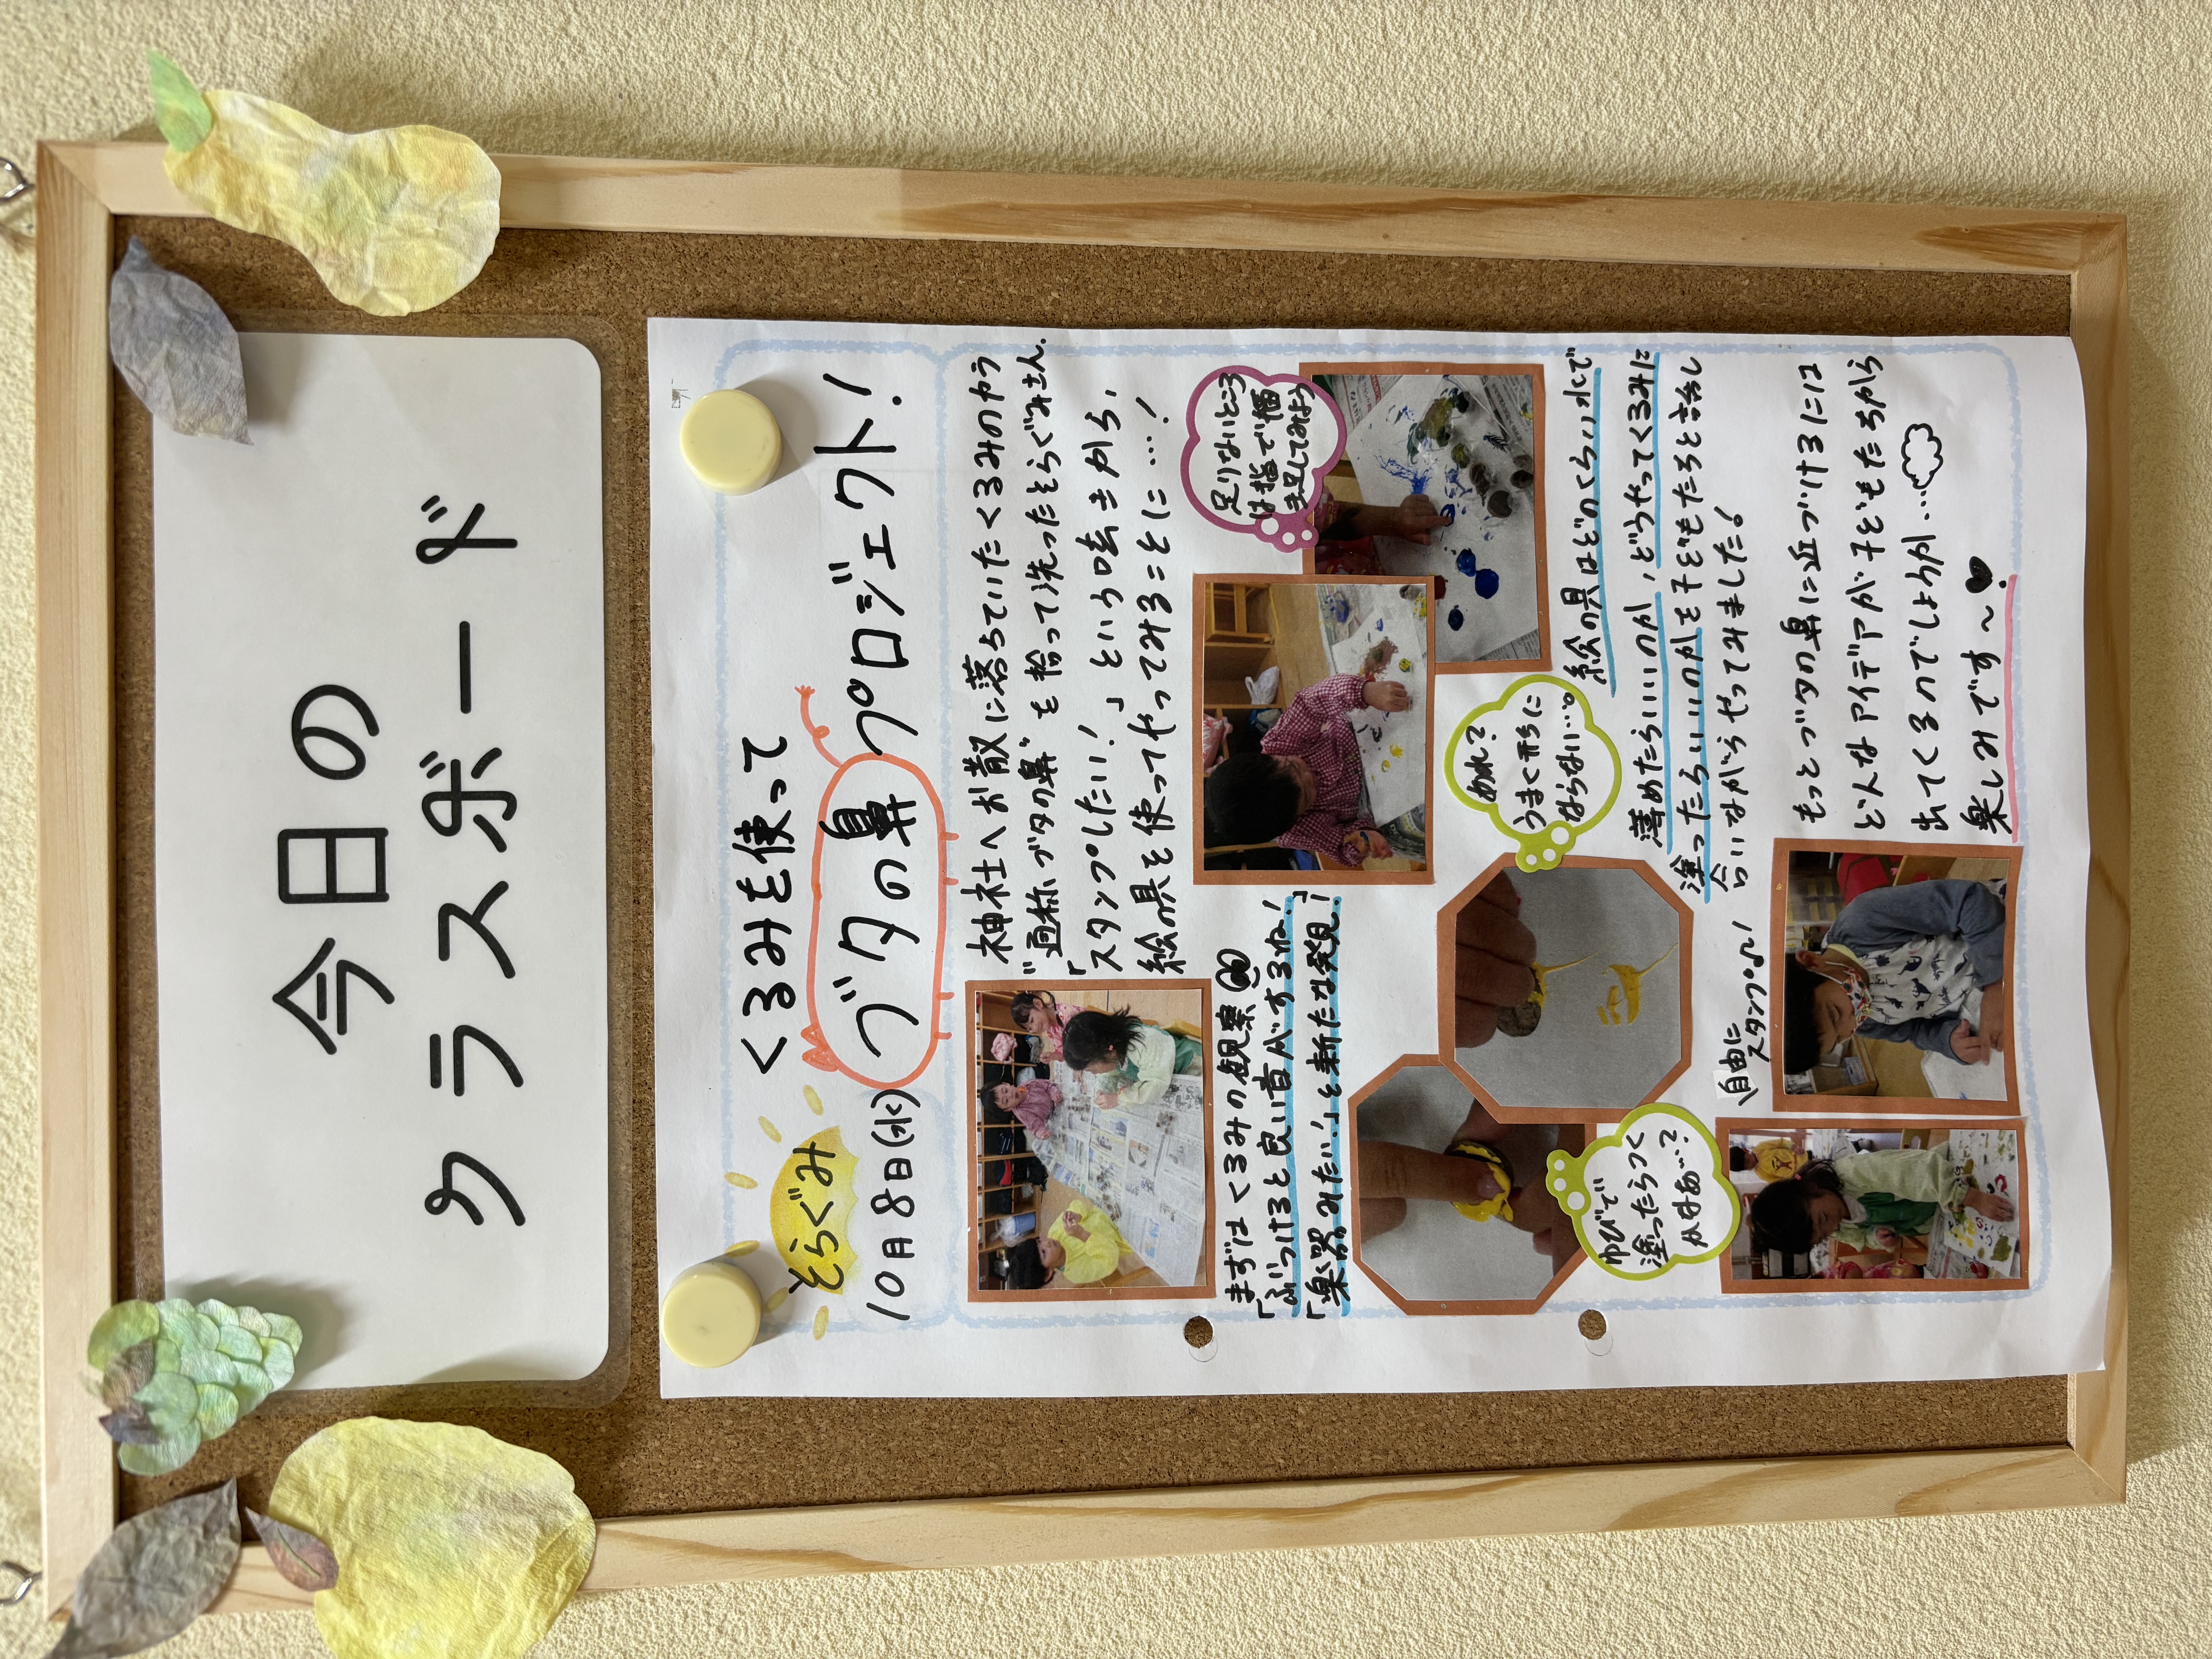 今日の
クラスボード
そらぐみ
くるみを使って
10月8日(水)
ブタの鼻プロジェクト!
神社へお散歩に落ちていたくるみのカラ
"通称ブタの鼻"を拾って洗ったそらぐみさん。
「スタンプしたい!」という呟きから、
絵の具を使ってやってみることに…!
まずはくるみの観察
「ぶつけると良い音がするね!」
「楽器みたい!」と新たな発見!
足りないところ
は指で描
き足してみよう
あれ?
うまく形に
ならない…。
ゆびで
塗ったらつく
かなあ…?
絵の具はどのくらい水で
薄めたらいいのか、どうやってくるみに
塗ったらいいのかを子どもたちと話し
合いながらやってみました!
自由に
スタンプ♪
もっとブタの鼻に近づけるには
どんなアイデアが子どもたちから
出てくるのでしょうか…
楽しみです〜♥